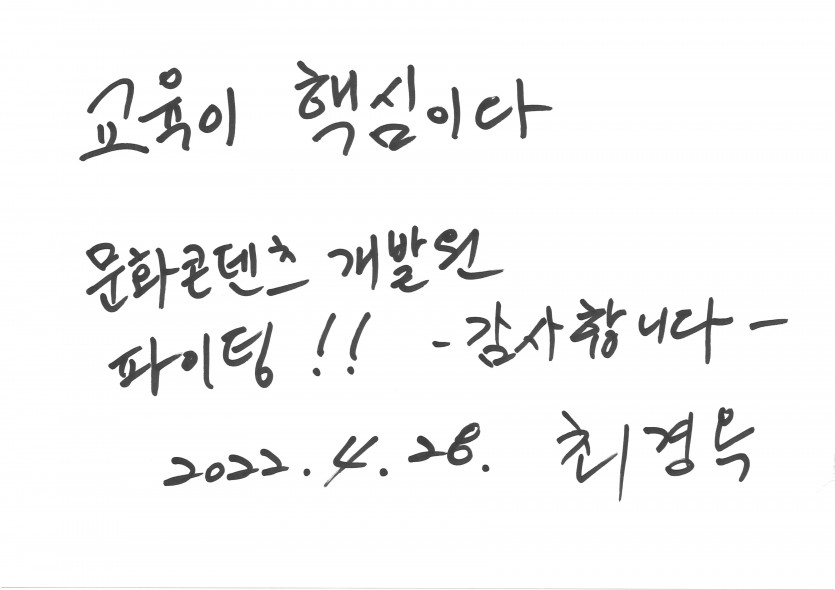 교육이 핵심이다
문화콘텐츠 개발원
파이팅!! -감사합니다-
2022.4.28. 최경욱